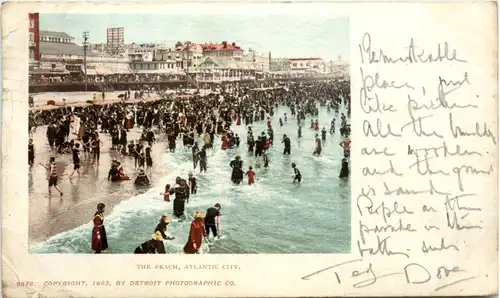 Remarkable
place, just
like picture
All the buildings
are wooden
and the ground
is sand.
People on the
parade in their
bathing suits
THE BEACH, ATLANTIC CITY.
COPYRIGHT, 1902, BY DETROIT PHOTOGRAPHIC CO.
Ted Dove